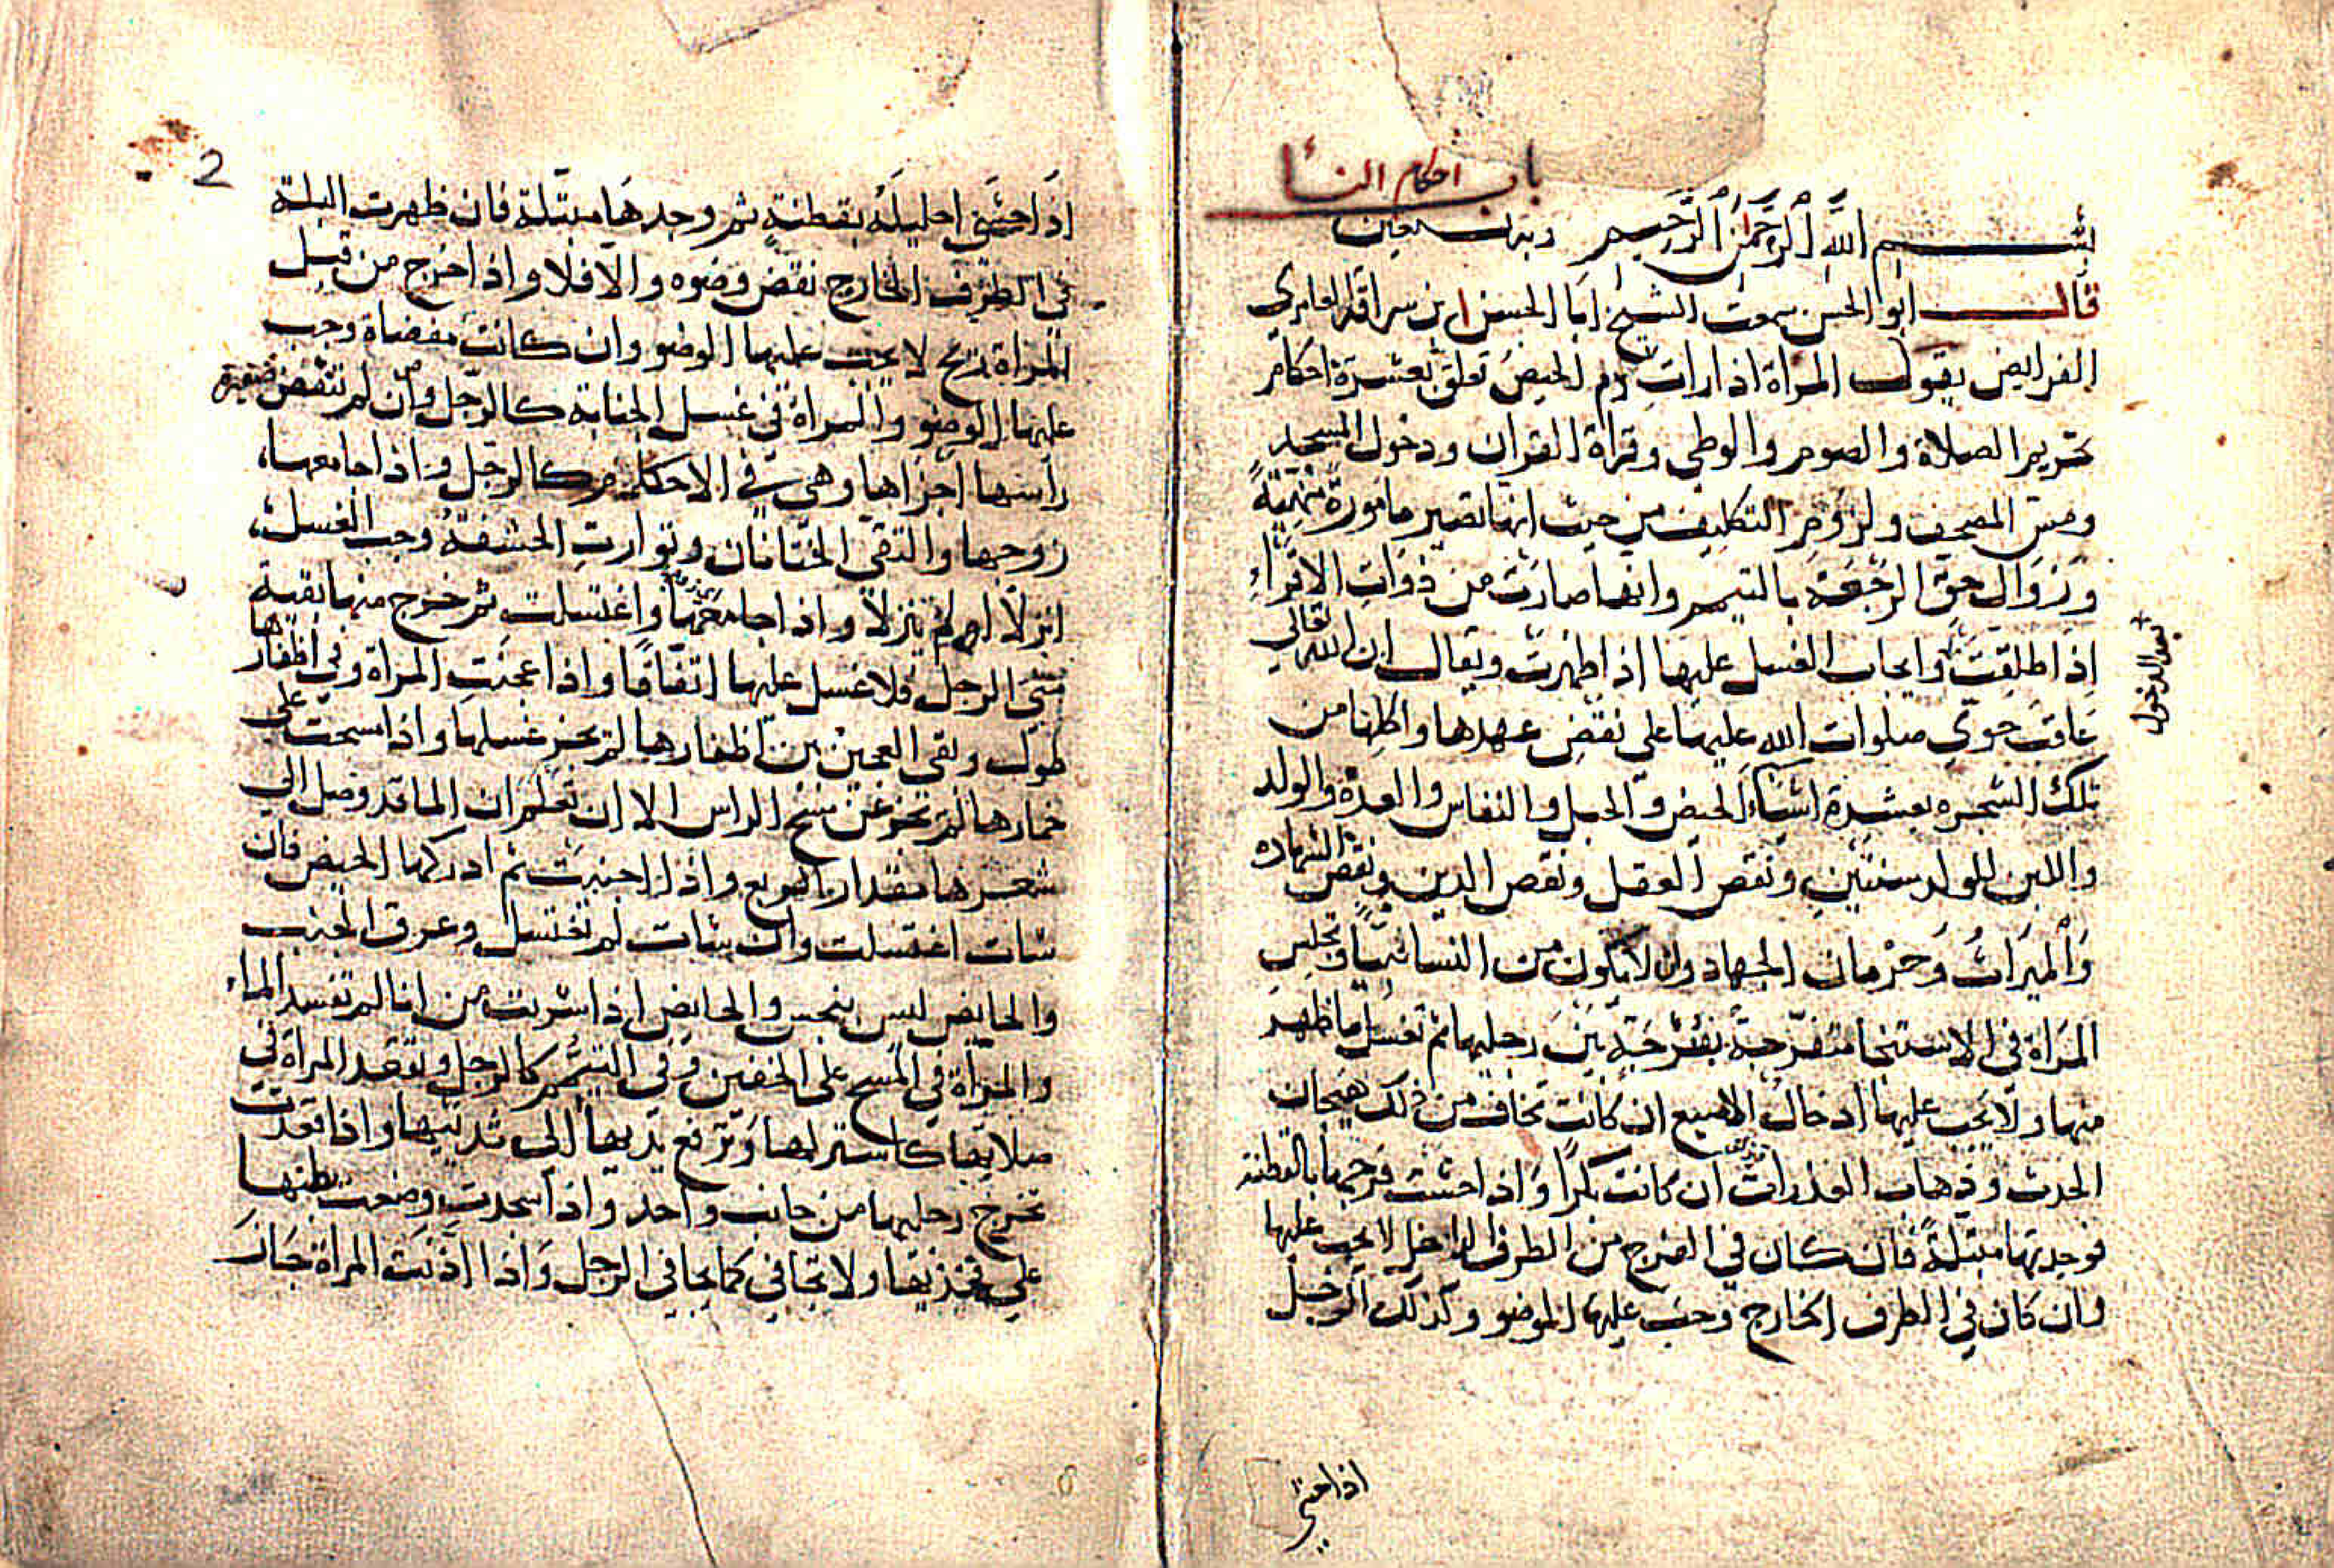 باب احكام النسأ
بسم الله الرحمن الرحيم وبه نستعين
قال ابو الحسن سمعت الشيخ ابا الحسن ابن سراقة العامري
الفرايض يقول المراة اذا رات دم الحيض تعلق بعشرة احكام
تحريم الصلاة والصوم والوطي وقراة القران ودخول المسجد
ومس المصحف ولزوم التكليف من حيث انها تصير مامورة منهية
وزوال حق الرجعة بالتيمم وانها صارت من ذوات الاقراء
اذا طلقت وايجاب الغسل عليها اذا طهرت ويقال ان الله تعالي
بعد الدخول
عاقب حوي صلوات الله عليها علي نقض عهدها واكلها من
تلك الشجره بعشرة اشياء الحيض والحبل والنفاس والعدة والولد
واللبن للولد سنتين ونقص العقل ونقص الدين ونقص الشهاده
والميراث وحرمان الجهاد وان لا يكون من النسا نبيا وتجلس
المراة في الاستنجا متفرجة بفرجة بين رجليها ثم تغسل ما ظهر
منها ولا يجب عليها ادخال الاصبع ان كانت تخاف من ذلك هيجان
الحدث وذهاب العذرات ان كانت بكرا واذا احشت فرجها بالقطنة
فوجدتها مبتلة فان كان في الفرج من الطرف الداخل لا يجب عليها
وان كان في الطرف الخارج وجب عليها الوضو وكذلك الرجل
اذا حشي
2
اذا حشي احليله بقطنة ثم وجدها مبتلة فان ظهرت البلة
في الطرف الخارج نقض وضوه والا فلا واذا خرج من قبل
المراة ريح لا يجب عليها الوضو وان كانت مفضاة وجب
عليها الوضو والمراة في غسل الجنابة كالرجل وان لم تنقض ضفيرة
راسها اجزاها وهي في الاحكام كالرجل واذا جامعها
زوجها والتقي الختانان وتوارت الحشفة وجب الغسل
انزلا ام لم ينزلا واذا جامعها واغتسلت ثم خرج منها بقية
مني الرجل فلا غسل عليها اتفاقا واذا عجنت المراة وفي اظفارها
طول وبقي العجين بين اظفارها لم يجز غسلها واذا مسحت علي
خمارها لم تجز عن مسح الراس الا ان تعلم ان الما قد وصل الي
شعرها مقدار الربع واذا اجنبت ثم ادركها الحيض فان
شات اغتسلت وان شات لم تغتسل وعرق الجنب
والحايض ليس بنجس والحايض اذا شربت من انا لم تفسد الماء
والمراة في المسح علي الخفين وفي التيمم كالرجل وتقعد المراة في
صلاتها كاستر لها وترفع يديها الي ثدييها واذا قعدت
تخرج رجليها من جانب واحد واذا سجدت وضعت بطنها
علي فخذيها ولا تجافي كما يجافي الرجل واذا اذنت المراة جاز